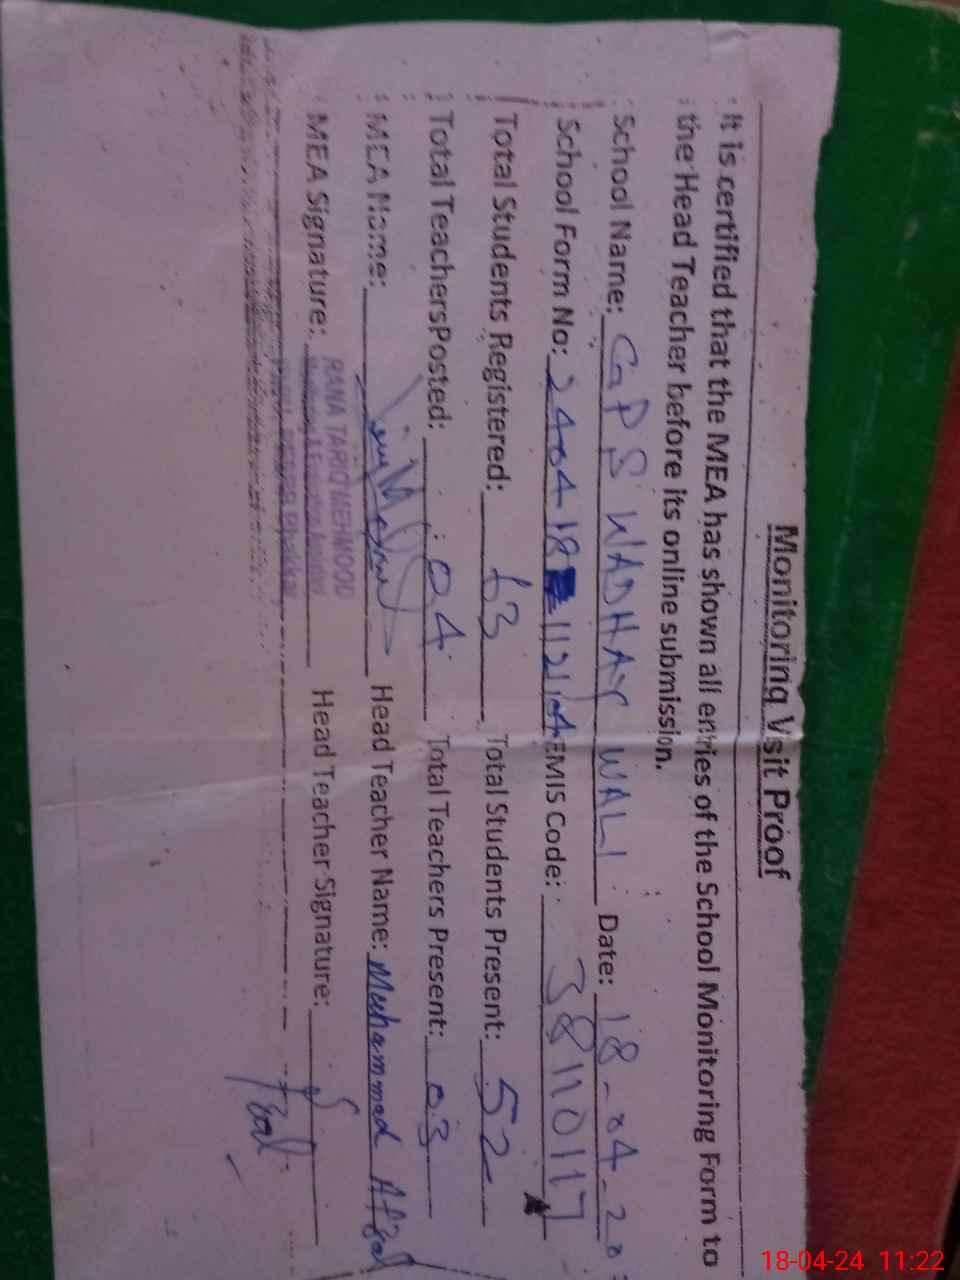 Monitoring Visit Proof
It is certified that the MEA has shown all entries of the School Monitoring Form to
the Head Teacher before its online submission.
School Name: GPS WADHAY WALI Date: 18-04-20
School Form No: 240418 11214 EMIS Code: 38110117
Total Students Registered: 63 Total Students Present: 52
Total TeachersPosted: 04 Total Teachers Present: 03
MEA Name: Head Teacher Name: Muhammad Afzal
MEA Signature: Head Teacher Signature: Afzal
RANA TARIQ MEHMOOD
Monitoring & Evaluation Assistant
18-04-24 11:22